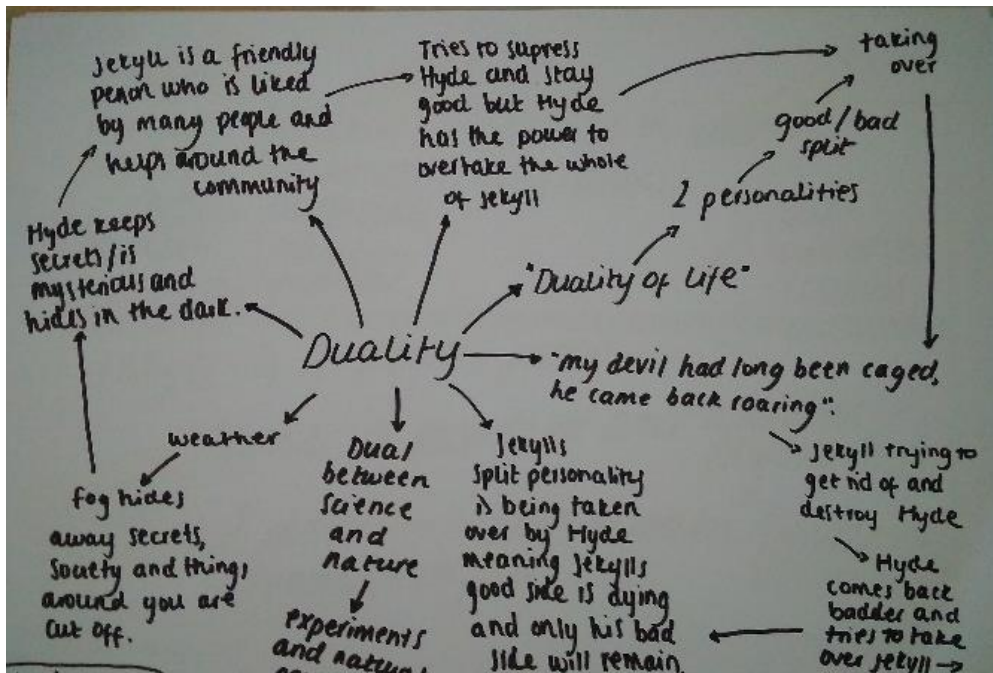 Jekyll is a friendly
person who is liked
by many people and
helps around the
community
Tries to supress
Hyde and stay
good but Hyde
has the power to
overtake the whole
of Jekyll
taking
over
good/bad
split
2 personalities
"Duality of Life"
Hyde keeps
secrets/is
mysterious and
hides in the dark.
Duality
"my devil had long been caged,
he came back roaring".
weather
fog hides
away secrets,
society and things
around you are
cut off.
Dual
between
science
and
nature
experiments
and natural
Jekylls
split personality
is being taken
over by Hyde
meaning Jekylls
good side is dying
and only his bad
side will remain.
Jekyll trying to
get rid of and
destroy Hyde
Hyde
comes back
badder and
tries to take
over Jekyll